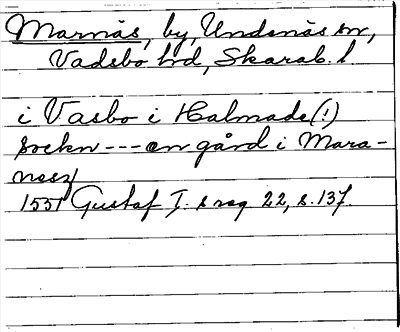 Marnäs, by, Undenäs sn,
Vadsbo hd, Skarab. l.
i Vasbo i Halmade (!)
sockn --- en gård i Mara-
nesz
1551 Gustaf I. s reg 22, s. 137.